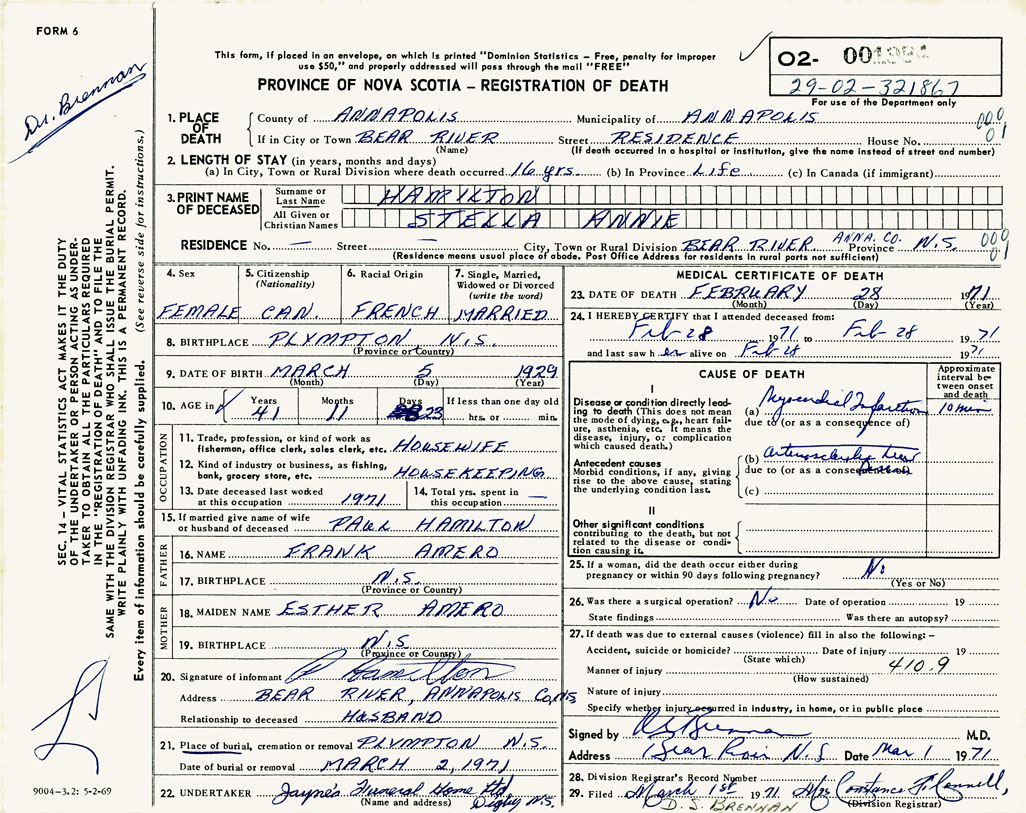 FORM 6
Dr. Brennan
This form, if placed in an envelope, on which is printed "Dominion Statistics – Free, penalty for improper
use $50," and properly addressed will pass through the mail "FREE"
PROVINCE OF NOVA SCOTIA – REGISTRATION OF DEATH
O2-
29-02-321867
For use of the Department only
SEC. 14 – VITAL STATISTICS ACT MAKES IT THE DUTY
OF THE UNDERTAKER OR PERSON ACTING AS UNDER-
TAKER TO OBTAIN ALL THE PARTICULARS REQUIRED
IN THE "REGISTRATION OF DEATH" AND TO FILE THE
SAME WITH THE DIVISION REGISTRAR WHO SHALL ISSUE THE BURIAL PERMIT.
WRITE PLAINLY WITH UNFADING INK. THIS IS A PERMANENT RECORD.
Every item of information should be carefully supplied. (See reverse side for instructions.)
1. PLACE OF DEATH County of ANNAPOLIS Municipality of ANNAPOLIS 000
If in City or Town BEAR RIVER Street RESIDENCE House No. 01
(Name) (If death occurred in a hospital or institution, give the name instead of street and number)
2. LENGTH OF STAY (in years, months and days)
(a) In City, Town or Rural Division where death occurred 16 yrs. (b) In Province Life (c) In Canada (if immigrant)
3. PRINT NAME OF DECEASED Surname or Last Name HAMILTON
All Given or Christian Names STELLA ANNIE
RESIDENCE No. — Street — City, Town or Rural Division BEAR RIVER ANNA. CO. Province N.S. 000 01
(Residence means usual place of abode. Post Office Address for residents in rural parts not sufficient)
4. Sex FEMALE
5. Citizenship (Nationality) CAN.
6. Racial Origin FRENCH
7. Single, Married, Widowed or Divorced (write the word) MARRIED
8. BIRTHPLACE PLYMPTON N.S.
(Province or Country)
9. DATE OF BIRTH MARCH 5 1929
(Month) (Day) (Year)
10. AGE in Years 41 Months 11 Days 23 If less than one day old hrs. or min.
OCCUPATION
11. Trade, profession, or kind of work as
fisherman, office clerk, sales clerk, etc. HOUSEWIFE
12. Kind of industry or business, as fishing,
bank, grocery store, etc. HOUSEKEEPING
13. Date deceased last worked at this occupation 1971
14. Total yrs. spent in this occupation —
15. If married give name of wife
or husband of deceased PAUL HAMILTON
FATHER
16. NAME FRANK AMERO
17. BIRTHPLACE N.S.
(Province or Country)
MOTHER
18. MAIDEN NAME ESTHER AMERO
19. BIRTHPLACE N.S.
(Province or Country)
20. Signature of informant P Hamilton
Address BEAR RIVER, ANNAPOLIS Co, NS
Relationship to deceased HUSBAND
21. Place of burial, cremation or removal PLYMPTON N.S.
Date of burial or removal MARCH 2, 1971
22. UNDERTAKER Jayne's Funeral Home Ltd Digby N.S.
(Name and address)
9004-3.2: 5-2-69
MEDICAL CERTIFICATE OF DEATH
23. DATE OF DEATH FEBRUARY 28 1971
(Month) (Day) (Year)
24. I HEREBY CERTIFY that I attended deceased from:
Feb 28 1971 to Feb 28 1971
and last saw her alive on Feb 28 1971
CAUSE OF DEATH
Approximate interval between onset and death
I
Disease or condition directly leading to death (This does not mean the mode of dying, e.g., heart failure, asthenia, etc. It means the disease, injury, or complication which caused death.)
(a) Myocardial Infarction 10 min
due to (or as a consequence of)
Antecedent causes
Morbid conditions, if any, giving rise to the above cause, stating the underlying condition last.
(b) arteriosclerotic heart
due to (or as a consequence of) Disease
(c)
II
Other significant conditions
contributing to the death, but not related to the disease or condition causing it.
25. If a woman, did the death occur either during
pregnancy or within 90 days following pregnancy? No
(Yes or No)
26. Was there a surgical operation? No Date of operation 19
State findings Was there an autopsy?
27. If death was due to external causes (violence) fill in also the following:–
Accident, suicide or homicide? Date of injury 19
(State which)
Manner of injury 410.9
(How sustained)
Nature of injury
Specify whether injury occurred in industry, in home, or in public place
Signed by Brennan M.D.
Address Bear River N.S. Date Mar 1 1971
28. Division Registrar's Record Number
29. Filed March 1st 1971 Mrs Constance
D. S. BRENNAN (Division Registrar)